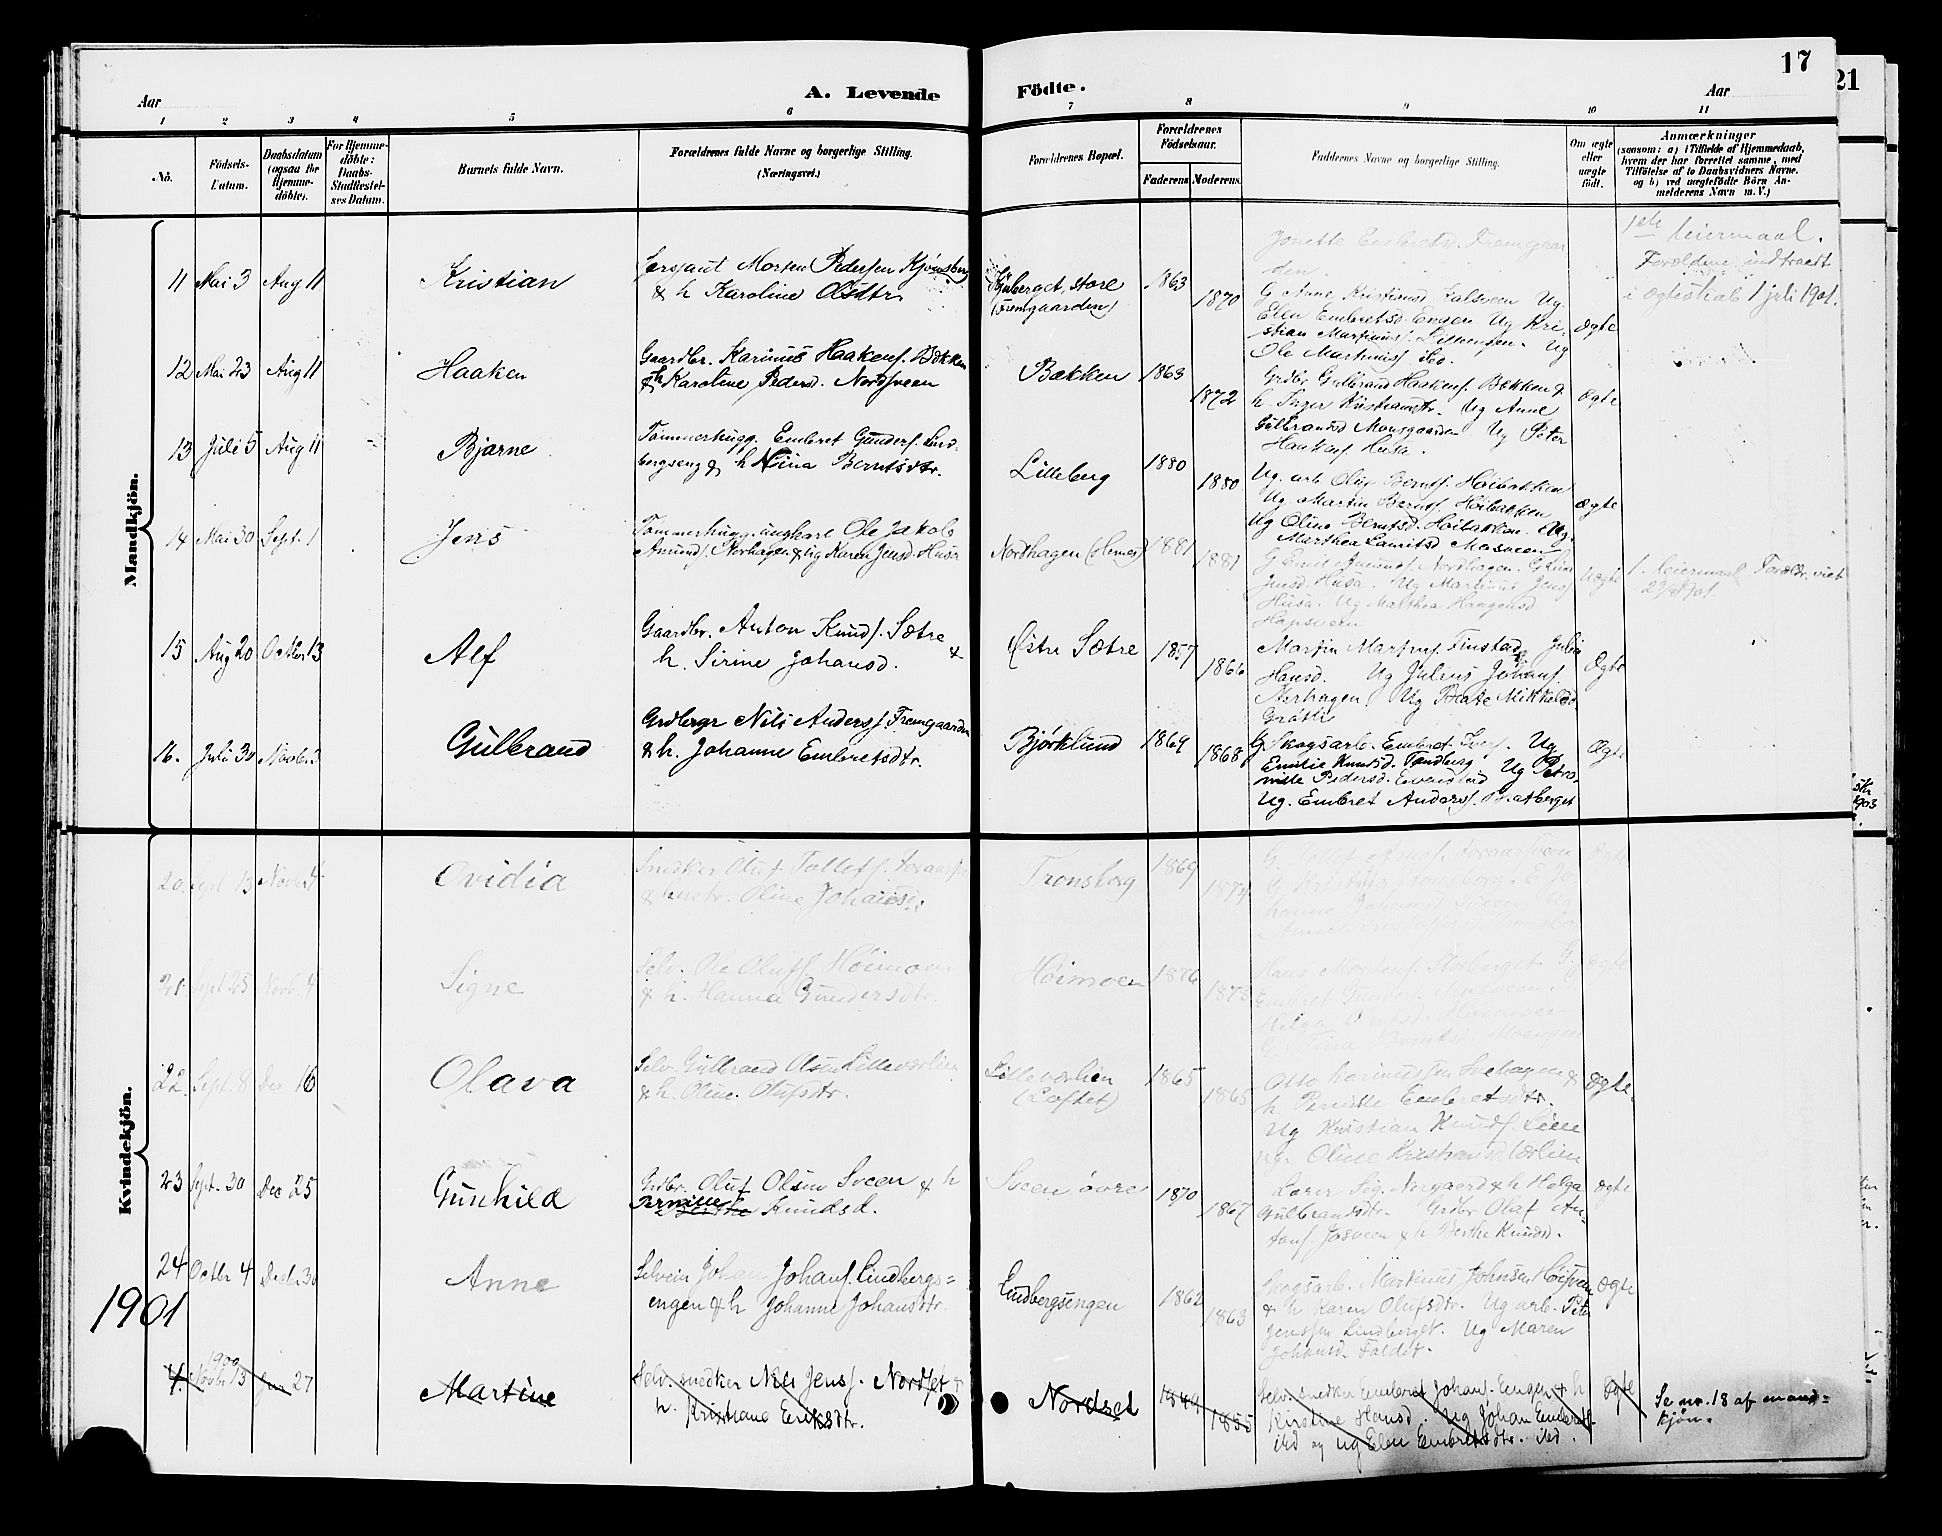 17
21
Aar
A. Levende
Födte.
Aar
1 2 3 4 5 6 7 8 9 10 11
Nô.
Födsels-Datum.
Daabsdatum (ogsaa for Hjemme-döbte).
For Hjemme-döbte: Daabs-Stadfæstel-ses Datum.
Barnets fulde Navn.
Forældrenes fulde Navne og borgerlige Stilling. (Næringsvei.)
Forældrenes Bopæl.
Forældrenes Födselsaar.
Faderens
Moderens
Faddernes Navne og borgerlige Stilling.
Om ægte eller uægte födt.
Anmærkninger
(saasom: a) i Tilfælde af Hjemmedaab, hvem der har forrettet samme, med Tilföielse af to Daabsvidners Navne, og b) ved uægtefödte Börn An-melderens Navn m. V.)
Mandkjön.
11 Mai 3 Aug 11
Kristian
Sersjant Morten Pedersen Kjönsberg
& h Karoline Olsdtr
Grüberget, store
(Fremgaarden)
1863
1870
Jonette Embretsd. Fremgaar
den.
G Anne Kristiansd Galsveen Ug.
Ellen Embretsd. Engen Ug Kri
stian Martinusf. Ug
Ole Martinusf ibd.
Ægte
1ste leiermaal.
Forældrene indtraadt
i ægteskab 1 juli 1901.
12 Mai 23 Aug 11
Haaken
Gaardbr. Karinus Haakensf. Bækken
& h Karoline Pedersd. Nordsveen
Bækken
1863
1872
Grdbr. Gulbrand Haakensf. Bækken &
h. Inger Kristiansdtr. Ug Anne
Gulbrandsd Monsgaarden Ug Peter
Haakensf Husa.
Ægte
13 Juli 5 Aug 11
Bjarne
Tømmerhugg. Embret Gundersf. Lind
bergseng & h Nina Berntsdtr.
Lilleberg
1880
1880
Ug. arb Oluf Berntsf. Høibakken
Ug Martin Berntsf. Høibakken
Ug Oline Berntsd. Høibakken. Ug.
Marthea Lauritsd Mosveen
Ægte
14 Mai 30 Sept. 1
Jens
Tømmerhugg. ungkarl Ole Jakob
Amundsf. Norhagen & pig Karen Jensd. Husa
Nordhagen (Hernes)
1881
1881
G Emil Amundsf. Nordhagen.
Jensd. Husa. Ug Martinus Jensf
Husa. Ug Malthea Haagensd
Hapsveen
Uægte
1. leiermaal. Foreldr. viet
1901.
15 Aug 20 Octbr 13
Alf
Gaardbr. Anton Knudsf. Sætre &
h. Sirine Johansd.
Østre Sætre
1857
1866
Martin Martinsf. Finstad, Julia
Hansd. Ug Julius Johansf.
Nerhagen, Ug Beate Mikkelsd
Grøtli
Ægte
16. Juli 30 Novbr. 3
Gulbrand
Grdbrgr Nils Andersf. Fremgaarden
& h. Johanne Embretsdtr.
Bjørklund
1869
1868
G Skogsarb. Embret Iversf. Ug
Emilie Knudsd. Tandberg. Ug Petro
nille Pedersd. Evenstad Ug
Ug. Embret Andersf. Bratberget
Ægte
Kvindekjön.
20. Sept 13 Novbr 4
Ovidia
Snedker Oluf Tollefsf.
& hustr. Oline Johansd.
Tronsborg
1869
1874
Ægte
21. Sept 25 Novb. 4
Signe
Selv. Ole Olufsf. Høimoen
& h. Hanna Gundersdtr.
Høimoen
1876
1878
Hans Mortensf. Storberget
Embret Gundersf.
Helga Olufsd. Høimoen
Nina Berntsd. Moseng
Ægte
22. Sept. 8 Dec 16
Olava
Selv. Gulbrand Olsen Lilleværlien
& h. Oline Olufsdtr.
Lilleværlien
(Loftet)
1865
1865
Otto Karinussen Svehagen &
h Pernille Embretsdtr.
Ug Kristian Knudsf. Lille
Ug. Oline Kristiansd Værlien
Ægte.
23 Sept. 30 Dec 25
Gunhild
Grdbr. Oluf Olsen Sveen & h
Pernille Berthe Knudsd.
Sveen øvre
1870
1867
Lærer Sig. Norgaard & h Helga
Gulbrandsdtr. Grdbr Olaf An-
tonsf. Josveen & h Berthe Knudsd.
Ægte
24 Octbr 4 Decbr 30
Anne
Selveier Johan Johansf. Lindbergs=
engen & h Johanne Johansdtr.
Lindbergsengen
1862
1863
Skogsarb. Martinus Johnsen Høisveen
& h Karen Olufsdtr. Ug arb. Peter
Jenssen Lindberget. Ug Maren
Johansd. Faldet.
Ægte
1901
4. 1900 Novbr 13 Jan 27
Martine
Selv. snedker Nils Jensf. Nordset &
h. Kristiane Eriksdtr.
Nordset
1849
1855
Selv. snedker Embret Johansf. Engen & h
Kirstine Hansd. Ug Johan Embretsf
ibd og ug Elen Embretsdtr. ibd.
Ægte
Se nr. 18 af mand=
kjøn.
1903